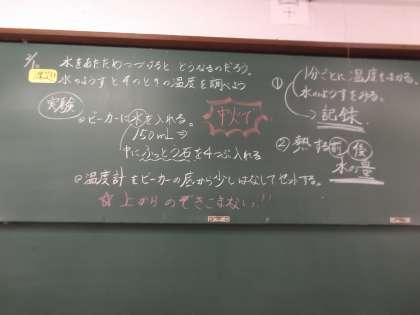 水をあたためつづけると どうなるのだろう。
水のようすとそのときの温度を調べよう
実験
ビーカーに水を入れる。
150mL
中にふっとう石を4つぶ入れる
中火で
温度計をビーカーの底から少しはなしてセットする。
☆上からのぞきこまない!!
① 1分ごとに温度をはかる。
水のようすをみる。
→記録
② 熱する前後
水の量